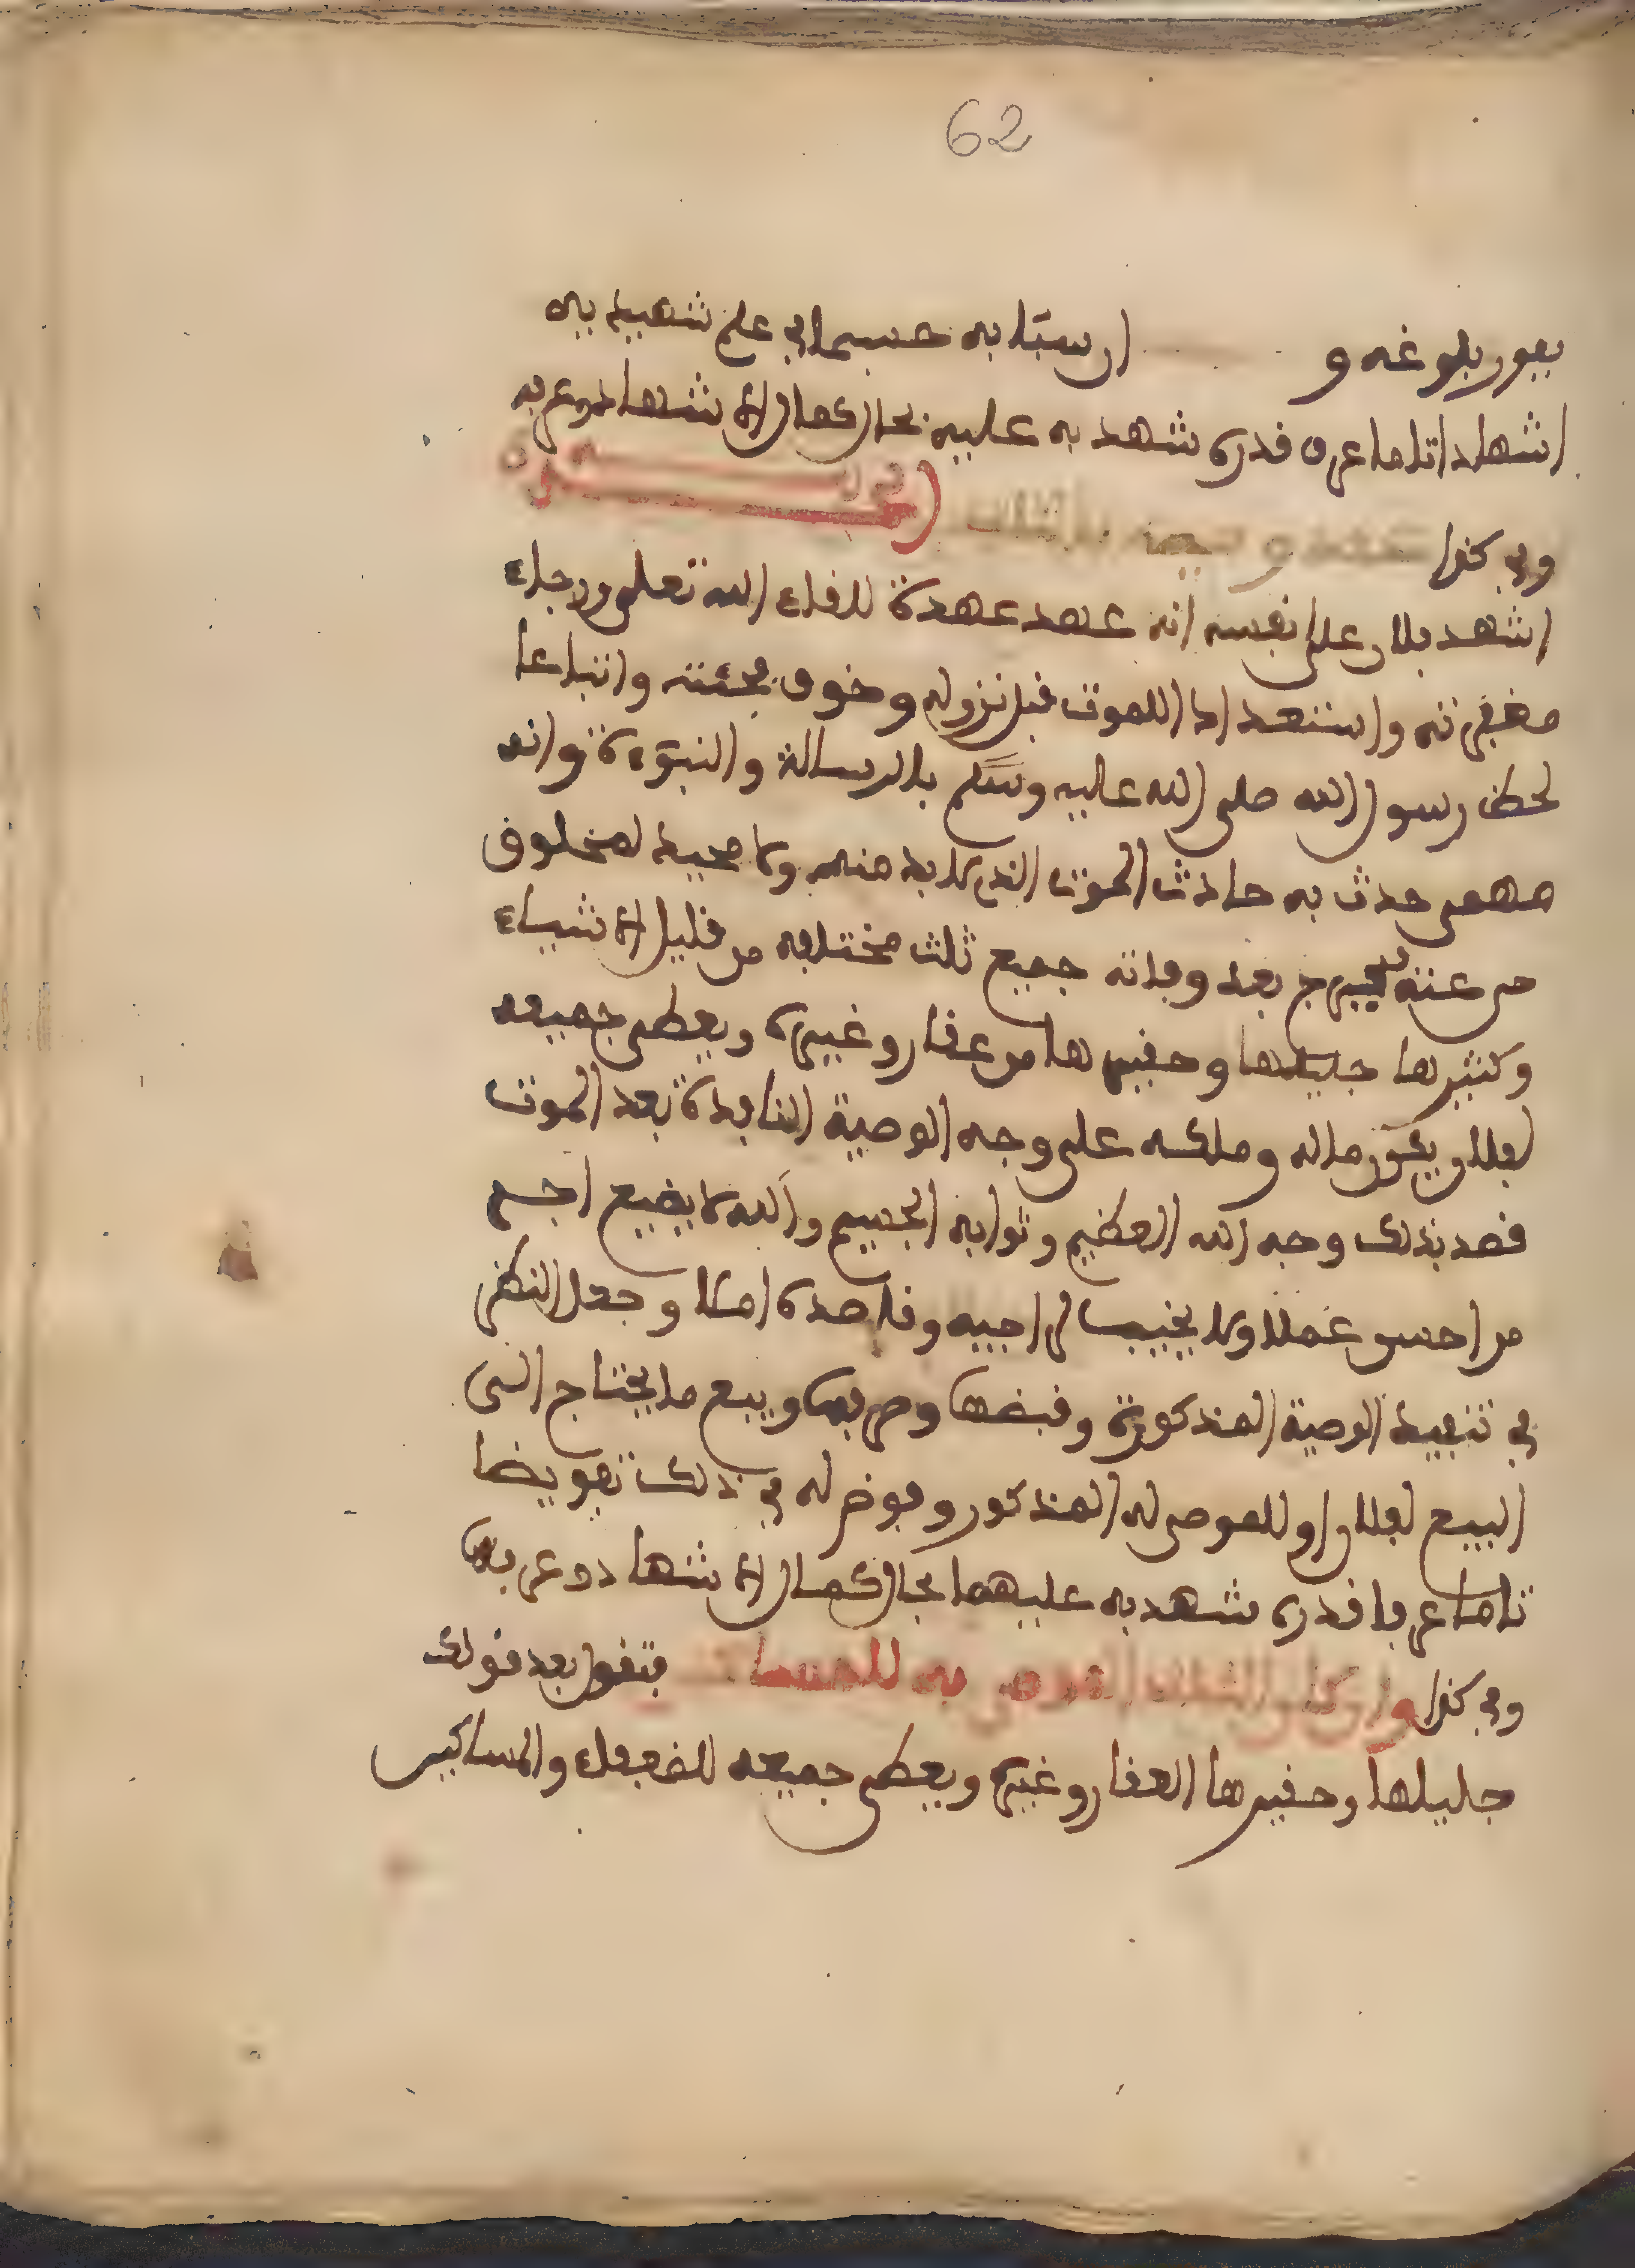 62
بفور بلوغه و ارستابه حسبما في علم شهيديه
اشهادا تاما عرف قدره شهد به عليه بحال كمال الاشهاد وعرفه
وفي كذا عقد وصية بالثلث
اشهد فلان على نفسه انه عهد عهدة للقاء الله تعلى ورجاء
مغفرته واستعدادا للموت قبل نزوله وخوف فجئته واتباعا
لحظ رسول الله صلى الله عليه وسلم بالرسالة والنبوءة وانه
مهمى حدث به حادث الموت الذي لا بد منه ولا محيد لمخلوق
من عنه فيخرج بعد وفاته جميع ثلث مختلفه من قليل الاشياء
وكثيرها جليلها وحقيرها من عقار وغيره ويعطى جميعه
لفلان يكون ماله وملكه على وجه الوصية النافذة بعد الموت
قصد بذلك وجه الله العظيم وثوابه الجسيم والله لا يضيع اجر
من احسن عملا ولا يخيب لراجيه وقاصده املا وجعل النظر
في تنفيذ الوصية المذكورة وقبضها وصرفها وبيع ما يحتاج الى
البيع لفلان او للموصى له المذكور وفوض له في ذلك تفويضا
تاما عرفا قدره شهد به عليهما بحال كمال الاشهاد وعرفها
وفي كذا وان كان الثلث الموصى به للمساكين فتقول بعد قولك
جليلها وحقيرها العقار وغيره ويعطى جميعه للضعفاء والمساكين